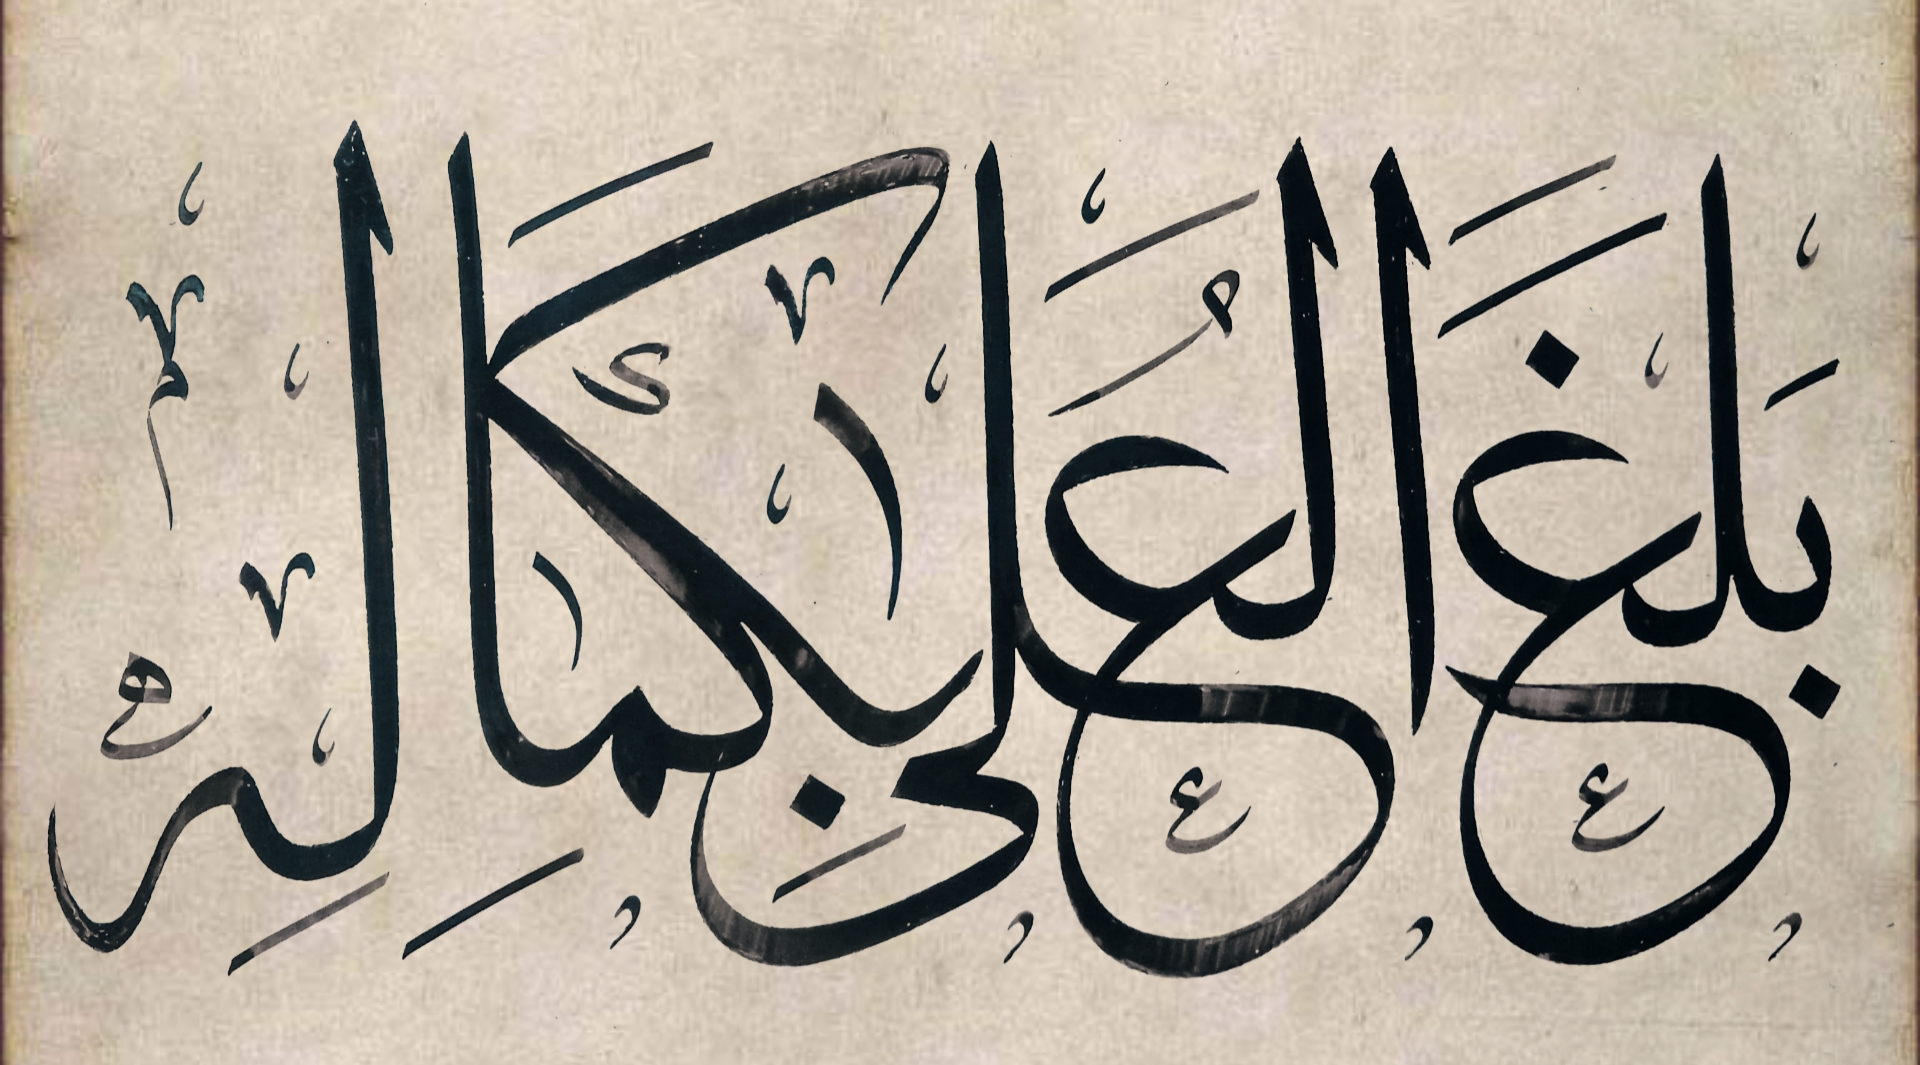 بَلَغَ العُلىٰ بِكَمالِهِ